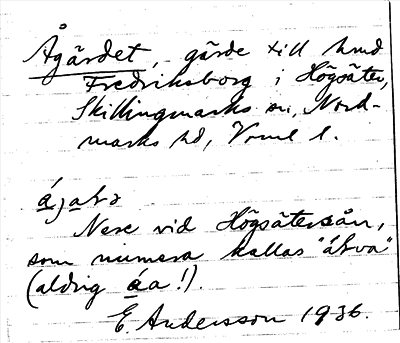 Ågärdet, gärde till hmd
Fredriksborg i Högsäter,
Skillingmarks sn, Nord-
marks hd, Vrml l.
ájatə
Nere vid Högsätersån,
som numera kallas "åkva"
(aldrig áa!).
E. Andersson 1936.